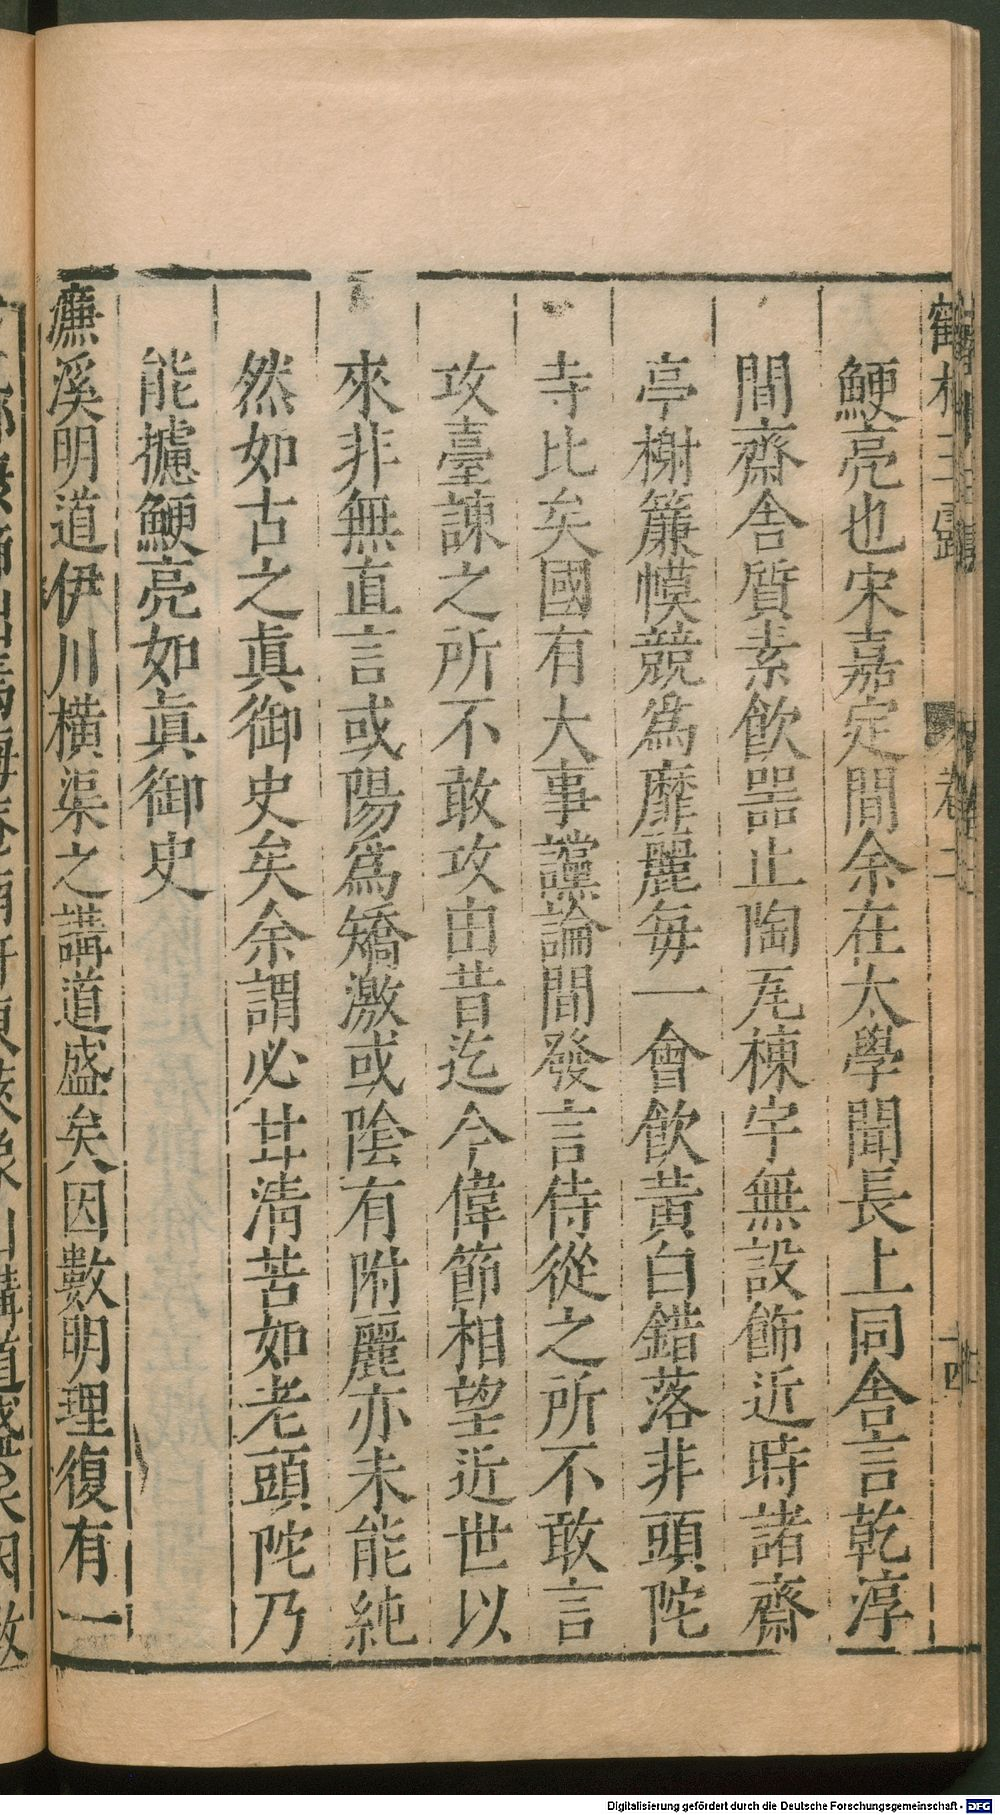 鶴林玉露
卷二
十四
鯁亮也宋嘉定間余在太學聞長上同舍言乾淳
間齋舍質素飲器止陶瓦棟宇無設飾近時諸齋
亭榭簾幙競爲靡麗每一會飲黃白錯落非頭陀
寺比矣國有大事讜論間發言侍從之所不敢言
攻臺諫之所不敢攻由昔迄今偉節相望近世以
來非無直言或陽爲矯激或陰有附麗亦未能純
然如古之眞御史矣余謂必甘清苦如老頭陀乃
能攄鯁亮如眞御史
濂溪明道伊川橫渠之講道盛矣因數明理復有一
講道盛矣因數
Digitalisierung gefördert durch die Deutsche Forschungsgemeinschaft - DFG